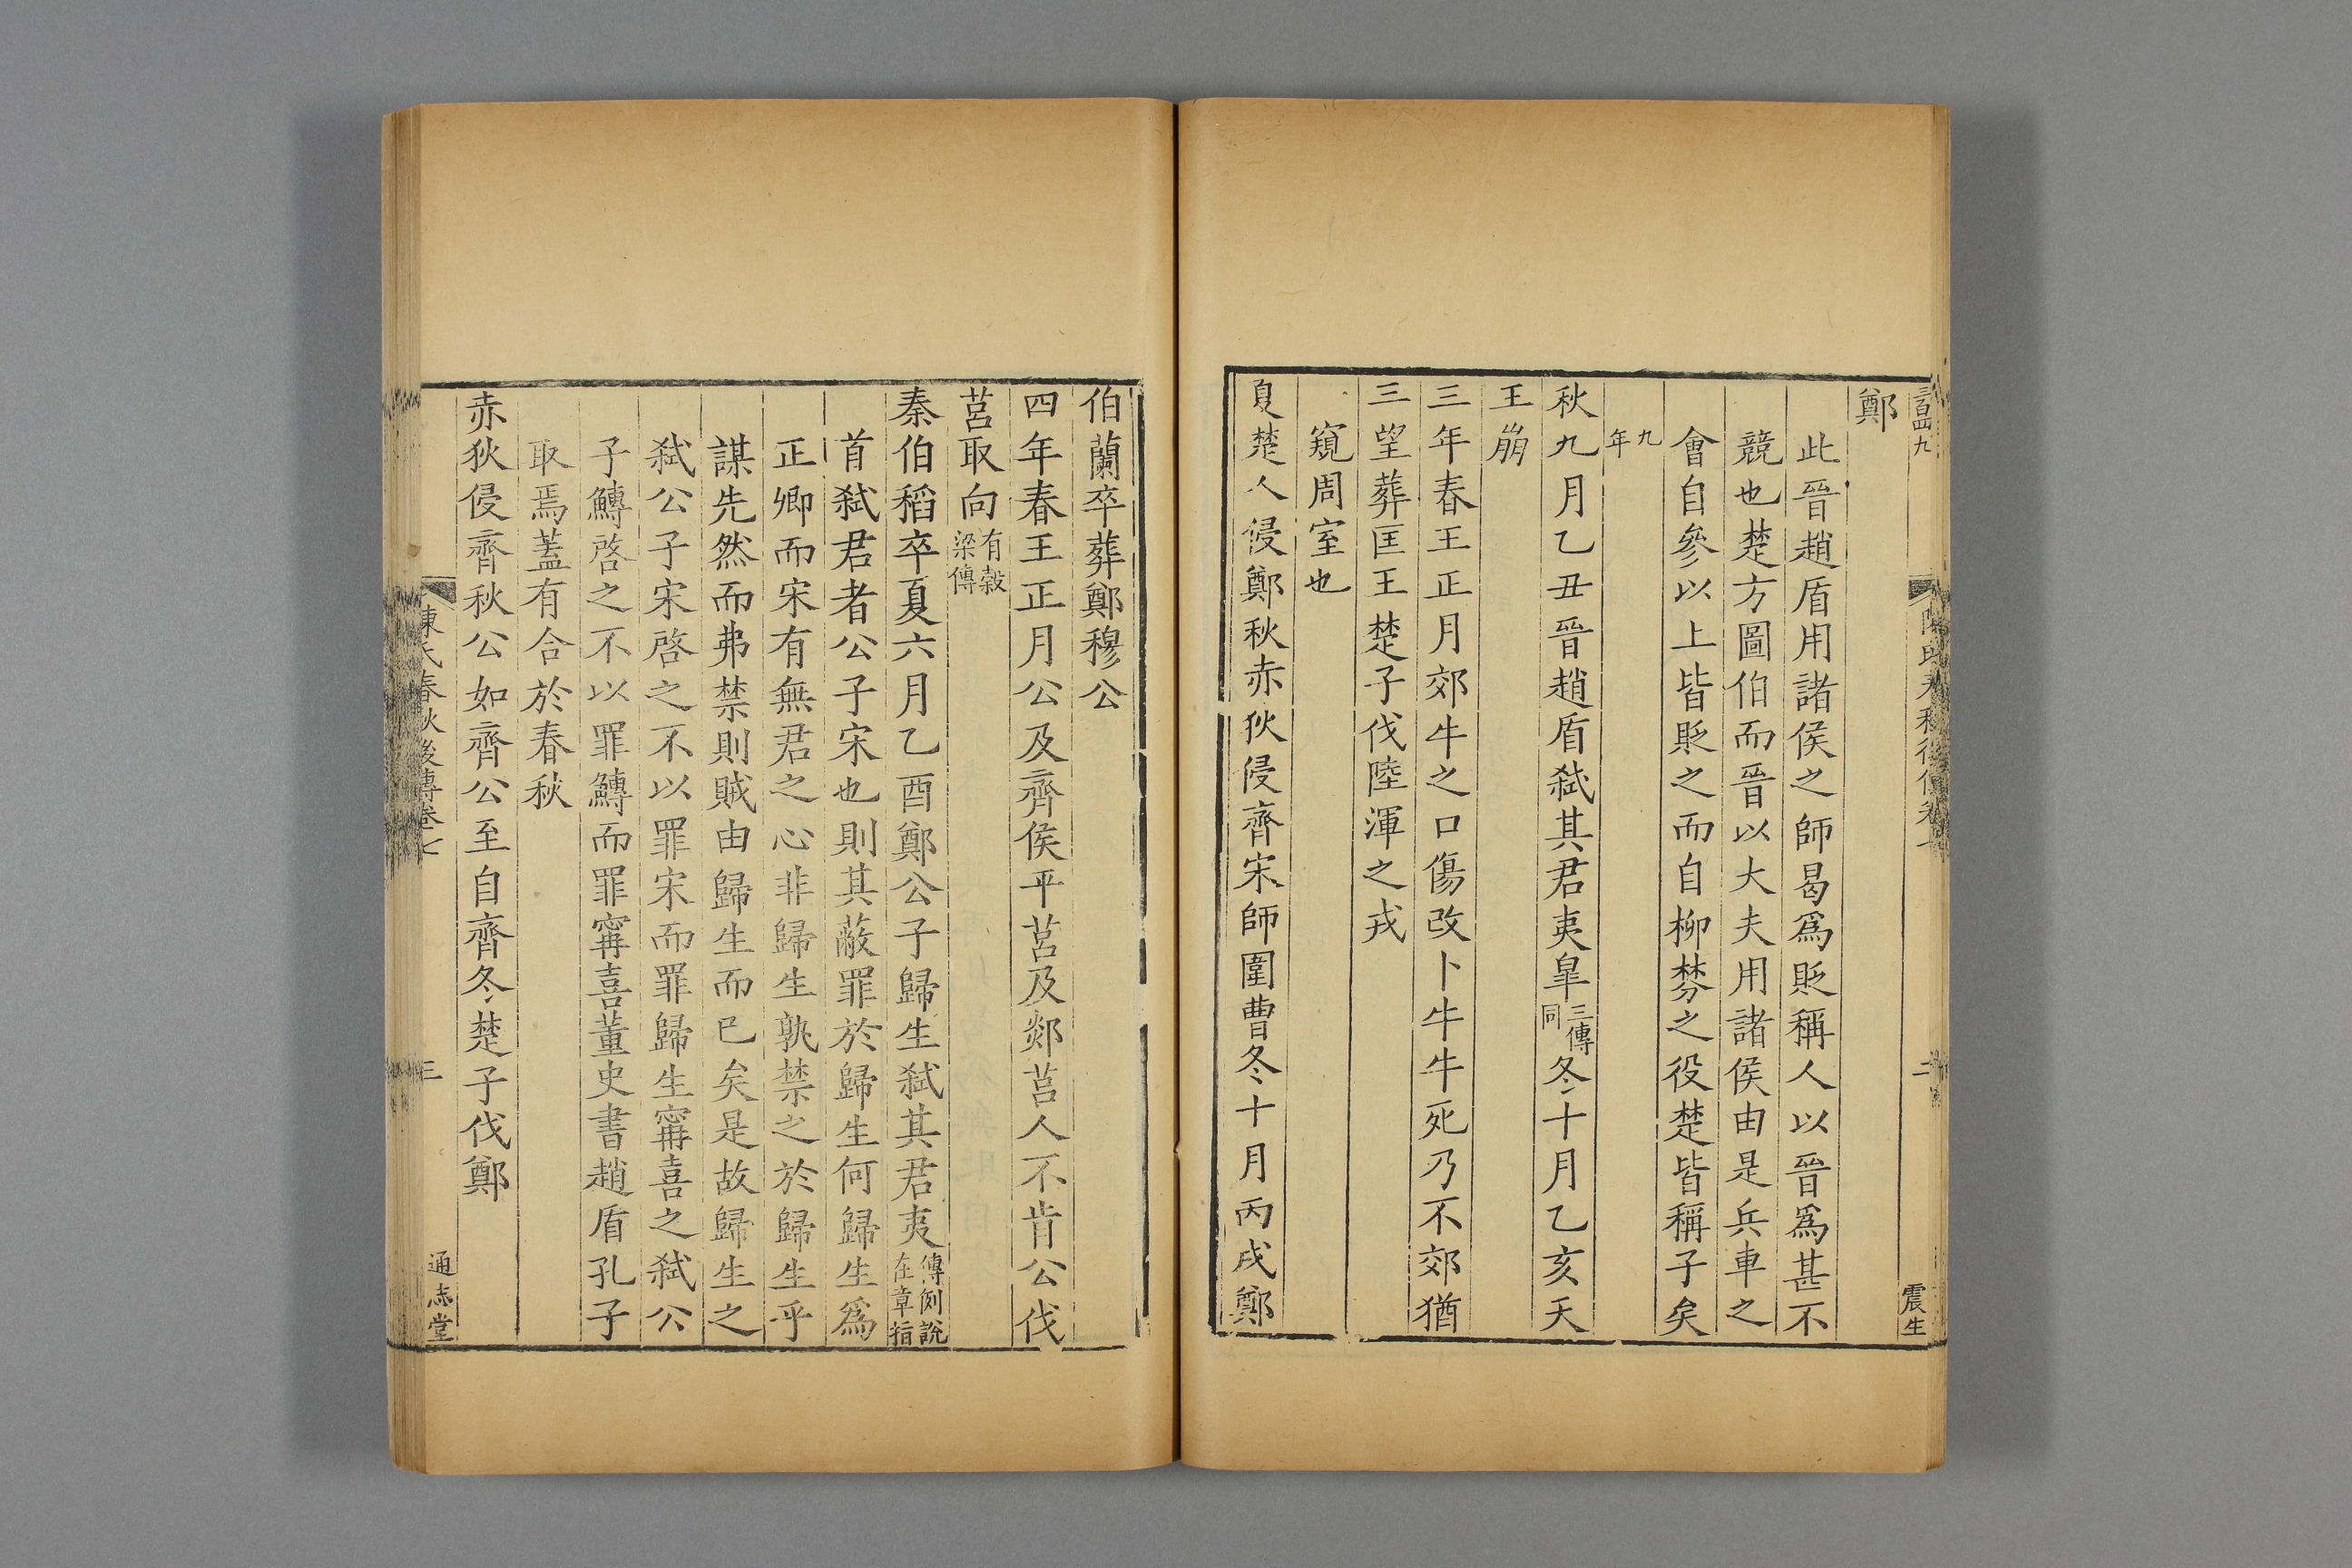 鄭
此晉趙盾用諸侯之師曷爲貶稱人以晉爲甚不
競也楚方圖伯而晉以大夫用諸侯由是兵車之
會自參以上皆貶之而自柳棼之役楚皆稱子矣
九年
秋九月乙丑晉趙盾弑其君夷皐三傳同冬十月乙亥天
王崩
三年春王正月郊牛之口傷改卜牛牛死乃不郊猶
三望葬匡王楚子伐陸渾之戎
窺周室也
夏楚人侵鄭秋赤狄侵齊宋師圍曹冬十月丙戌鄭
震生
伯蘭卒葬鄭穆公
四年春王正月公及齊侯平莒及郯莒人不肯公伐
莒取向有穀梁傳
秦伯稻卒夏六月乙酉鄭公子歸生弑其君夷傳例說在章指
首弑君者公子宋也則其蔽罪於歸生何歸生爲
正卿而宋有無君之心非歸生孰禁之於歸生乎
謀先然而弗禁則賊由歸生而已矣是故歸生之
弑公子宋啓之不以罪宋而罪歸生甯喜之弑公
子鱄啓之不以罪鱄而罪甯喜董史書趙盾孔子
取焉蓋有合於春秋
赤狄侵齊秋公如齊公至自齊冬楚子伐鄭
陳氏春秋後傳卷七
三
通志堂